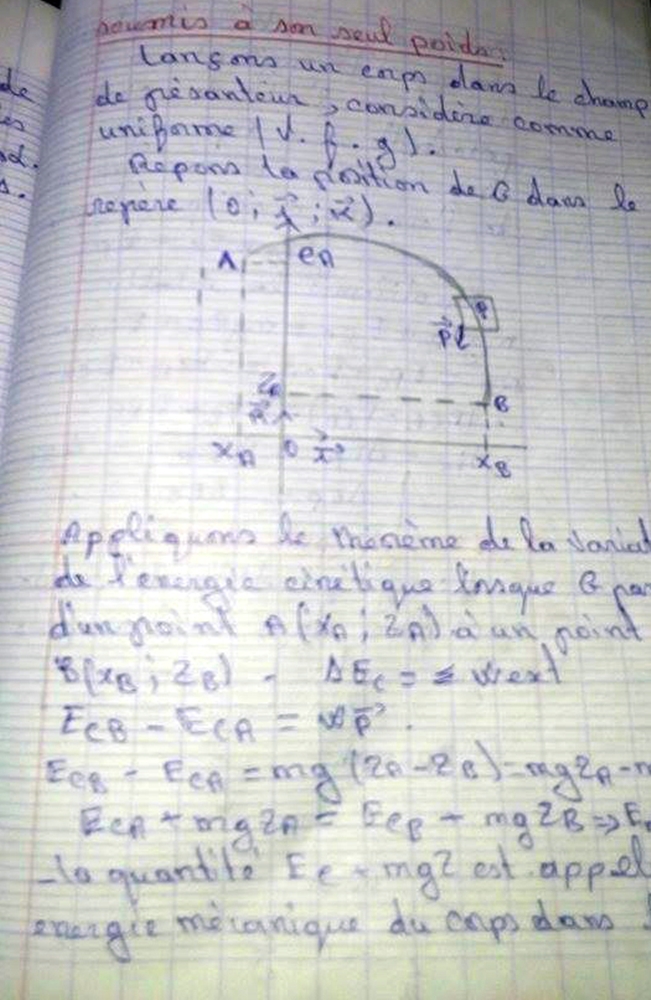 soumis à son seul poids.
Lançons un corps dans le champ
de pésanteur, considère comme
uniforme (V. f. g).
Repons la position de G dans le
repère (O; i; k).
A
eA
G
P
ZB
B
k
xA O i
xB
Appliquons le théorème de la variat
de l'énergie cinétique lorsque G par
d'un point A(xA; ZA) à un point
B(xB; ZB) - ΔEc = Σ Wext
ECB - ECA = W P.
ECB - ECA = mg (ZA-ZB) = mgZA - m
ECA + mgZA = ECB + mgZB => E
- la quantité Ec + mgZ est appel
energie mécanique du corps dans